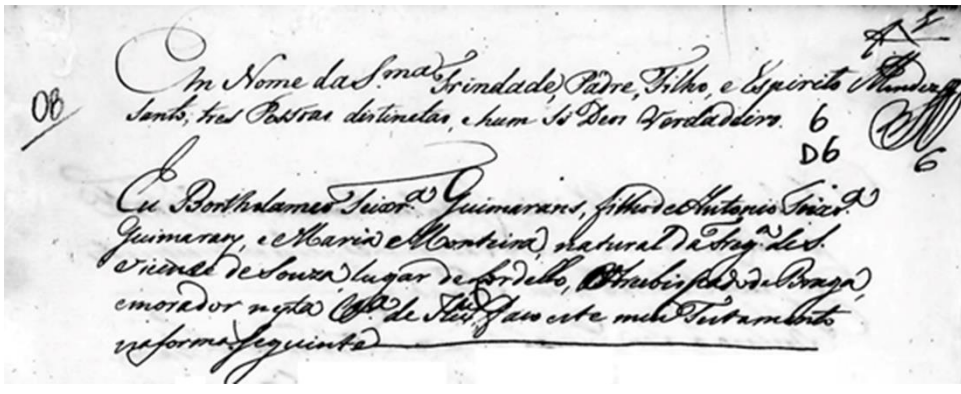 Em Nome da S.ma Trindade, Padre, Filho, e Espirito
Santo, tres Pessoas distinctas, e hum só Deos Verdadeiro.
08
6
D6
6
Eu Bortholameo Teixr.a Guimarans, filho de Antonio Teixr.a
Guimarans, e Maria Monteira, natural da Freg.a de S.
Vicente de Souza, lugar de Lordello, Arcebispado de Braga,
e morador nesta de faco este meu Testamento
na forma seguinte